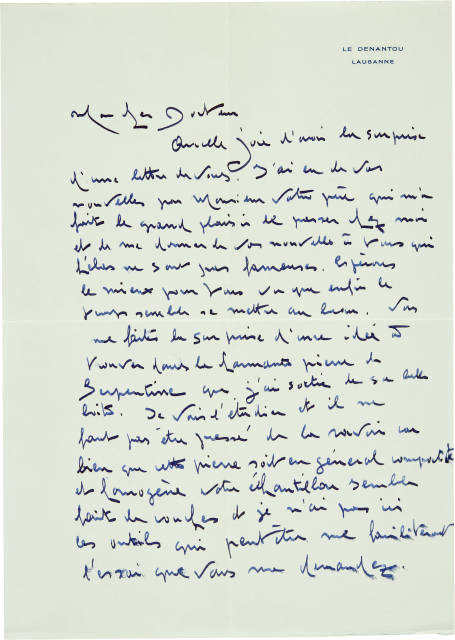 LE DENANTOU
LAUSANNE
Mon cher Docteur
Quelle joie d'avoir la surprise
d'une lettre de vous. J'ai eu de vos
nouvelles par Monsieur votre père qui m'a
fait le grand plaisir de passer chez moi
et de me donner de vos nouvelles à vous qui
hélas ne sont pas fameuses. Espérons
le mieux pour vous vu que enfin le
temps semble se mettre au beau. Vous
me faites la surprise d'une idée à
trouver dans la charmante pierre de
Serpentine que j'ai sortie de sa belle
boîte. Je vais l'étudier et il ne
faut pas être pressé de la revoir car
bien que cette pierre soit en général compacte
et homogène votre échantillon semble
fait de couches et je n'ai pas ici
les outils qui peut être me faciliteront
l'essai que vous me demandez.